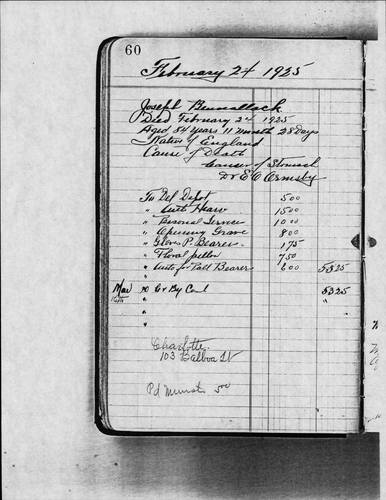 60
February 24 1925
Joseph
Died February 24 1925
Aged 84 years 11 month 28 Days
Native of England
Cause of Death
Cancer of Stomach
Dr E C Ormsby
To Del Depot 5 00
" Auto Hearse 15 00
" Personal Service 10 00
" Opening Grave 8 00
" Gloves P. Bearer 1 75
" Floral 7 50
" Auto for Pall Bearer 6 00 53 25
"
Mar 10 Cr By 53 25
" "
"
"
Charlotte
103 Balboa St
Pd 5 00